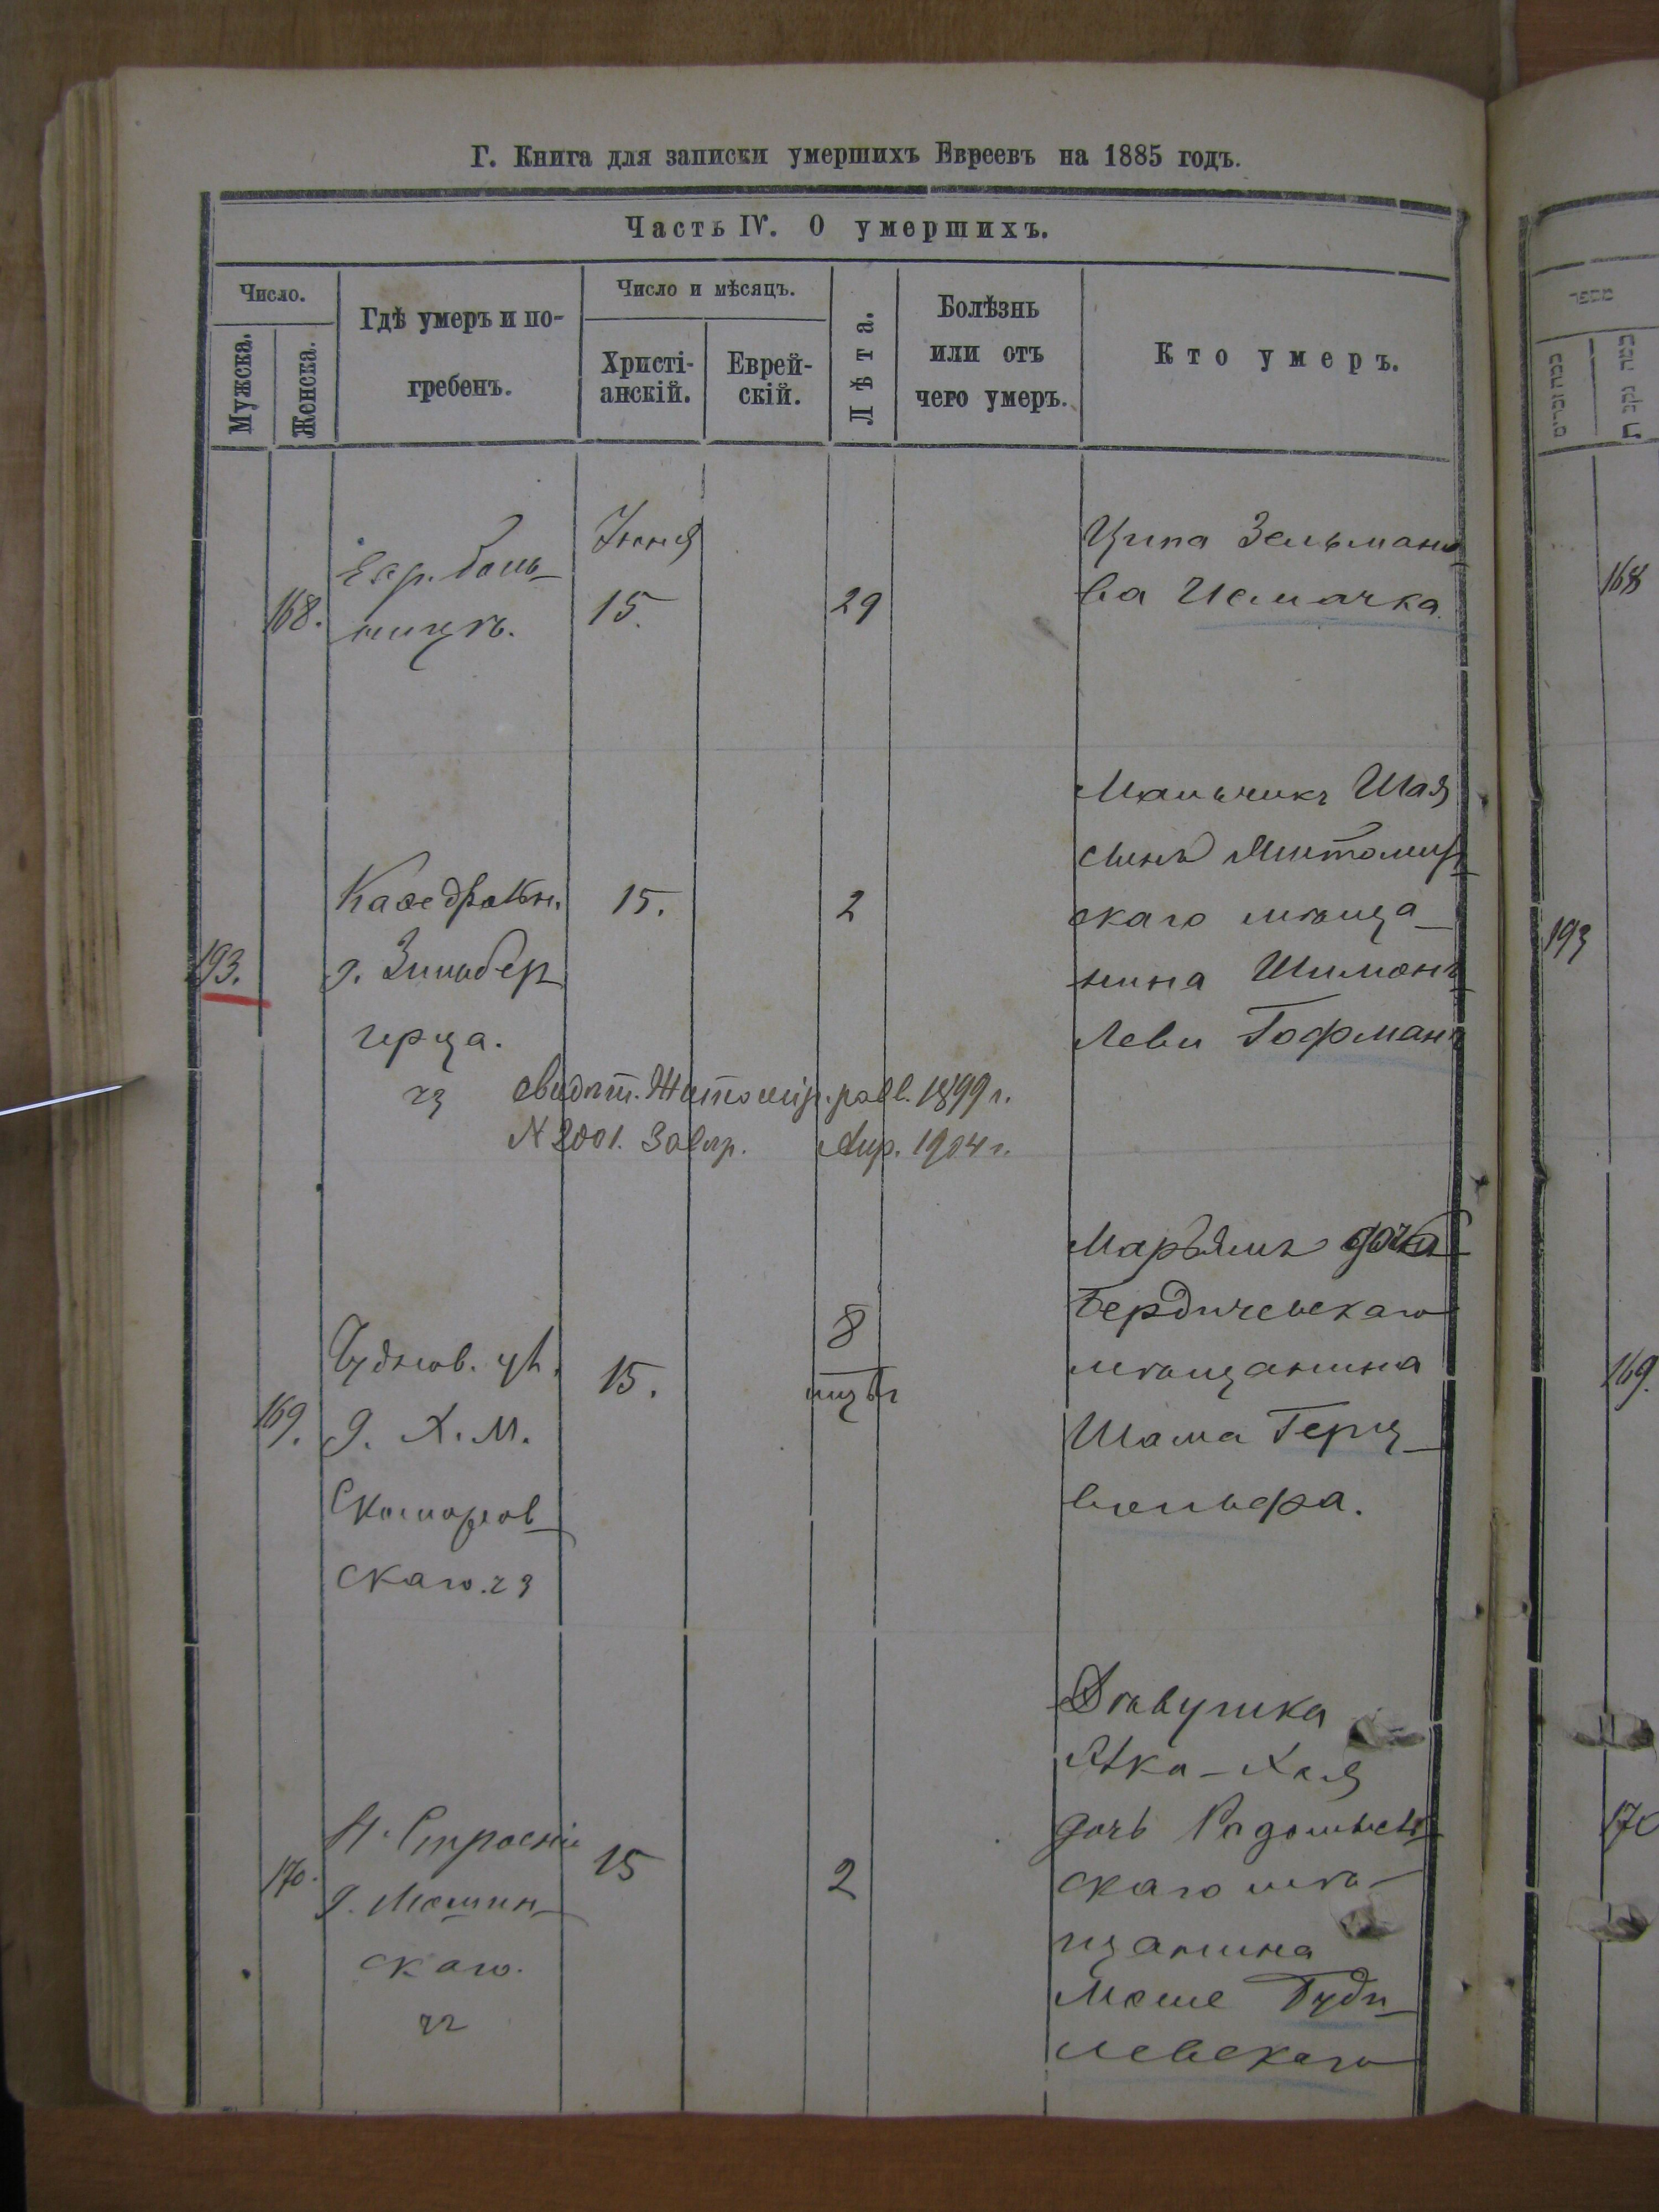 Г. Книга для записки умершихъ Евреевъ на 1885 годъ.
Часть IV. О умершихъ.
Число.
Мужска.
Женска.
Гдѣ умеръ и по-
гребенъ.
Число и мѣсяцъ.
Христі-
анскій.
Еврей-
скій.
Лѣта.
Болѣзнь
или отъ
чего умеръ.
Кто умеръ.
168.
Евр. боль-
ницѣ.
Іюня
15.
29
Ципа Зельмано-
ва
193.
Кафедральн.
д. Зильбер
герца.
чз
15.
2
Мальчикъ Шая
сынъ Житомир-
скаго мѣща-
нина Шимонъ
Леви Гофманъ
свидѣт. Житомір. равв. 1899 г.
N 2001. Завѣр. Апр. 1904 г.
169.
Чуднов. ул.
д. Х. М.
Скоморов-
скаго. чз
15.
8
мцѣв
Марьямъ дочь
Бердичевскаго
мѣщанина
Шама Герц-
вольфа.
170.
д.
скаго.
чг
15
2
Дѣвушка
Хая
дочь Радомысль-
скаго мѣ-
щанина
Моше Буди-
левскаго
168
193
169.
170